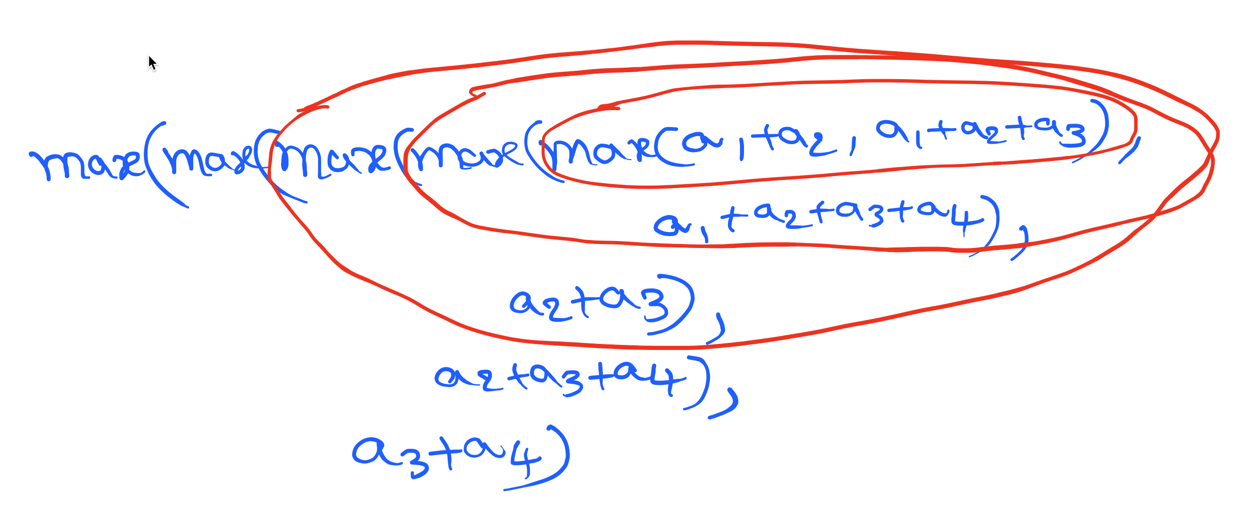 max(max(max(max(max(a₁+a₂, a₁+a₂+a₃),
a₁+a₂+a₃+a₄),
a₂+a₃),
a₂+a₃+a₄),
a₃+a₄)